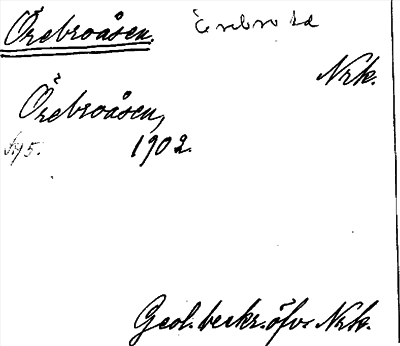 Örebroåsen. Örebro
Nrk.
Örebroåsen,
s. 75. 1902.
Geol. beskr. öfv. Nrk.